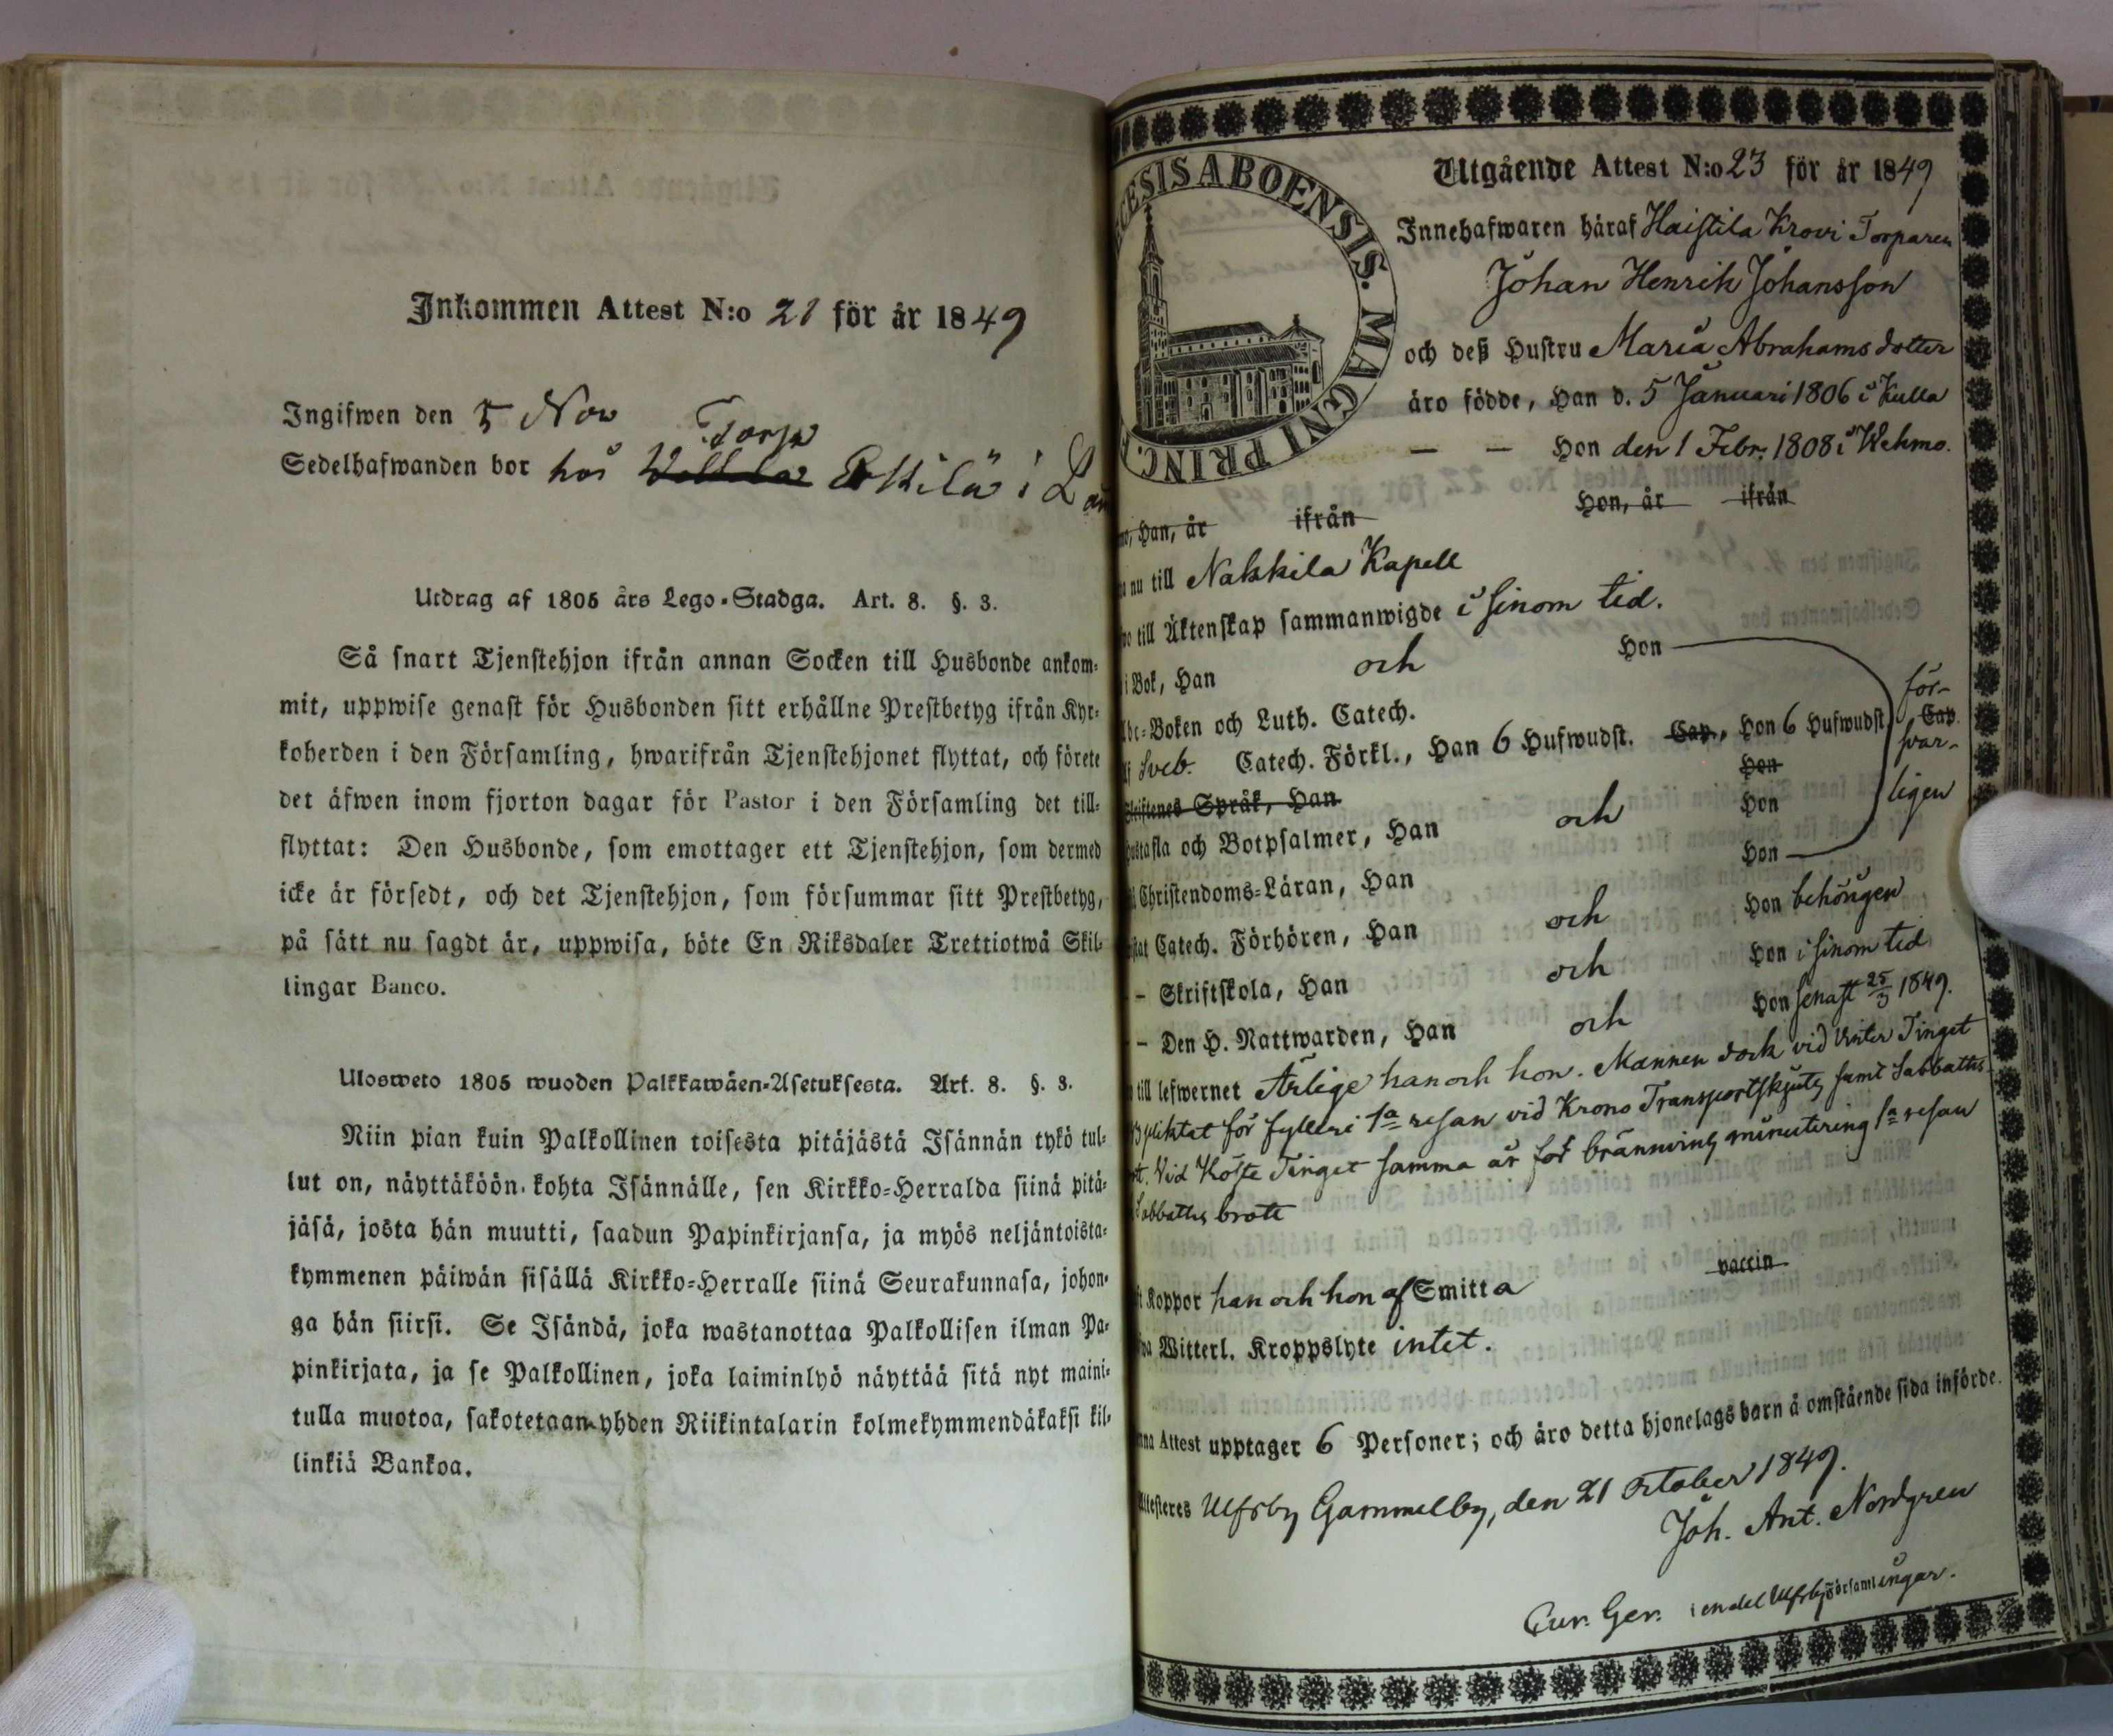 Inkommen Attest N:o 21 för år 1849
Ingifwen den 5 Nov
Torp
Sedelhafwanden bor hos i
Utdrag af 1805 års Lego-Stadga. Art. 8. §. 3.
Så snart Tjenstehjon ifrån annan Socken till Husbonde ankom-
mit, uppwise genast för Husbonden sitt erhållne Prestbetyg ifrån Kyr-
koherden i den Församling, hwarifrån Tjenstehjonet flyttat, och förete
det äfwen inom fjorton dagar för Pastor i den Församling det till-
flyttat: Den Husbonde, som emottager ett Tjenstehjon, som dermed
icke är försedt, och det Tjenstehjon, som försummar sitt Prestbetyg,
på sätt nu sagdt är, uppwisa, böte En Riksdaler Trettiotwå Skil-
lingar Banco.
Ulosweto 1805 wuoden Palkkawäen-Asetuksesta. Art. 8. §. 3.
Niin pian kuin Palkollinen toisesta pitäjästä Isännän tykö tul-
lut on, näyttäköön kohta Isännälle, sen Kirkko-Herralda siinä pitä-
jäsä, josta hän muutti, saadun Papinkirjansa, ja myös neljäntoista-
kymmenen päiwän sisällä Kirkko-Herralle siinä Seurakunnasa, johon-
ga hän siirsi. Se Isändä, joka wastanottaa Palkollisen ilman Pa-
pinkirjata, ja se Palkollinen, joka laiminlyö näyttää sitä nyt maini-
tulla muotoa, sakotetaan yhden Riikintalarin kolmekymmendäkaksi kil-
linkiä Bankoa.
ECESIS ABOENSIS. MAGNI PRINC.
Utgående Attest N:o 23 för år 1849
Innehafwaren häraf Haistila Krovi Torparen
Johan Henrik Johansson
och deß Hustru Maria Abrahamsdotter
äro födde, Han d. 5 Januari 1806 i Kulla
— — Hon den 1 Febr. 1808 i Wehmo.
Han, år ifrån Hon, år ifrån
nu till Nakkila Kapell
till Äktenskap sammanwigde i sinom tid.
i Bok, Han och Hon
Abc-Boken och Luth. Catech.
Sveb. Catech. Förkl., Han 6 Hufwudst. Cap., Hon 6 Hufwudst. Cap.
försvarligen
Skriftenes Språk, Han Hon
Hustafla och Botpsalmer, Han och Hon
Christendoms-Läran, Han Hon
Catech. Förhören, Han och Hon behörigen
– Skriftskola, Han och Hon i sinom tid
– Den H. Nattwarden, Han och Hon senast 25/3 1849.
till lefwernet Ärlige han och hon. Mannen dock vid Vinter Tinget
pliktat för fylleri 1a resan vid Krono Transportskjuts samt Sabbaths
Vid Höste Tinget samma år för bränvins minutering 1a resan
Sabbaths brott
Koppor han och hon af Smitta vaccin
Witterl. Kroppslyte intet.
Attest upptager 6 Personer; och äro detta hjonelags barn å omstående sida införde.
Attesteres Ulfsby Gammelby, den 21 October 1849.
Joh. Ant. Nordgren
Cur. Ger. i en del Ulfsby Församlingar.